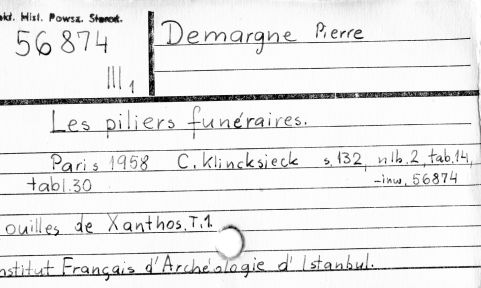 kł. Hist. Powsz. Staroż.
56874
III 1
Demargne Pierre
Les piliers funéraires.
Paris 1958 C. Klincksieck s. 132, nlb. 2, tab. 14,
tabl. 30 -inw. 56874
ouilles de Xanthos. T. 1.
nstitut Français d'Archéologie d'Istanbul.